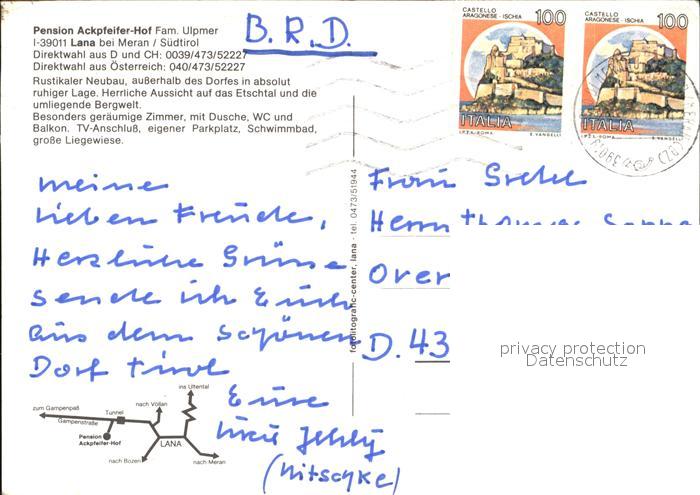 Pension Ackpfeifer-Hof Fam. Ulpmer
I-39011 Lana bei Meran / Südtirol
Direktwahl aus D und CH: 0039/473/52227
Direktwahl aus Österreich: 040/473/52227
Rustikaler Neubau, außerhalb des Dorfes in absolut
ruhiger Lage. Herrliche Aussicht auf das Etschtal und die
umliegende Bergwelt.
Besonders geräumige Zimmer, mit Dusche, WC und
Balkon. TV-Anschluß, eigener Parkplatz, Schwimmbad,
große Liegewiese.
B.R.D.
CASTELLO
ARAGONESE - ISCHIA
100
ITALIA
I.P.Z.S. - ROMA
E. VANGELLI
CASTELLO
ARAGONESE - ISCHIA
100
ITALIA
I.P.Z.S. - ROMA
E. VANGELLI
meine
lieben Freunde,
Herzliche Grüsse
sende ich Euch
aus dem schönen
Dorf Tirol
Eure
(Nitschke)
fotolitografic-center, lana - tel. 0473/51944
Frau
Herrn Thomas
Over
D. 43
privacy protection
Datenschutz
zum Gampenpaß
Gampenstraße
Tunnel
nach Völlan
ins Ultental
Pension
Ackpfeifer-Hof
LANA
nach Bozen
nach Meran